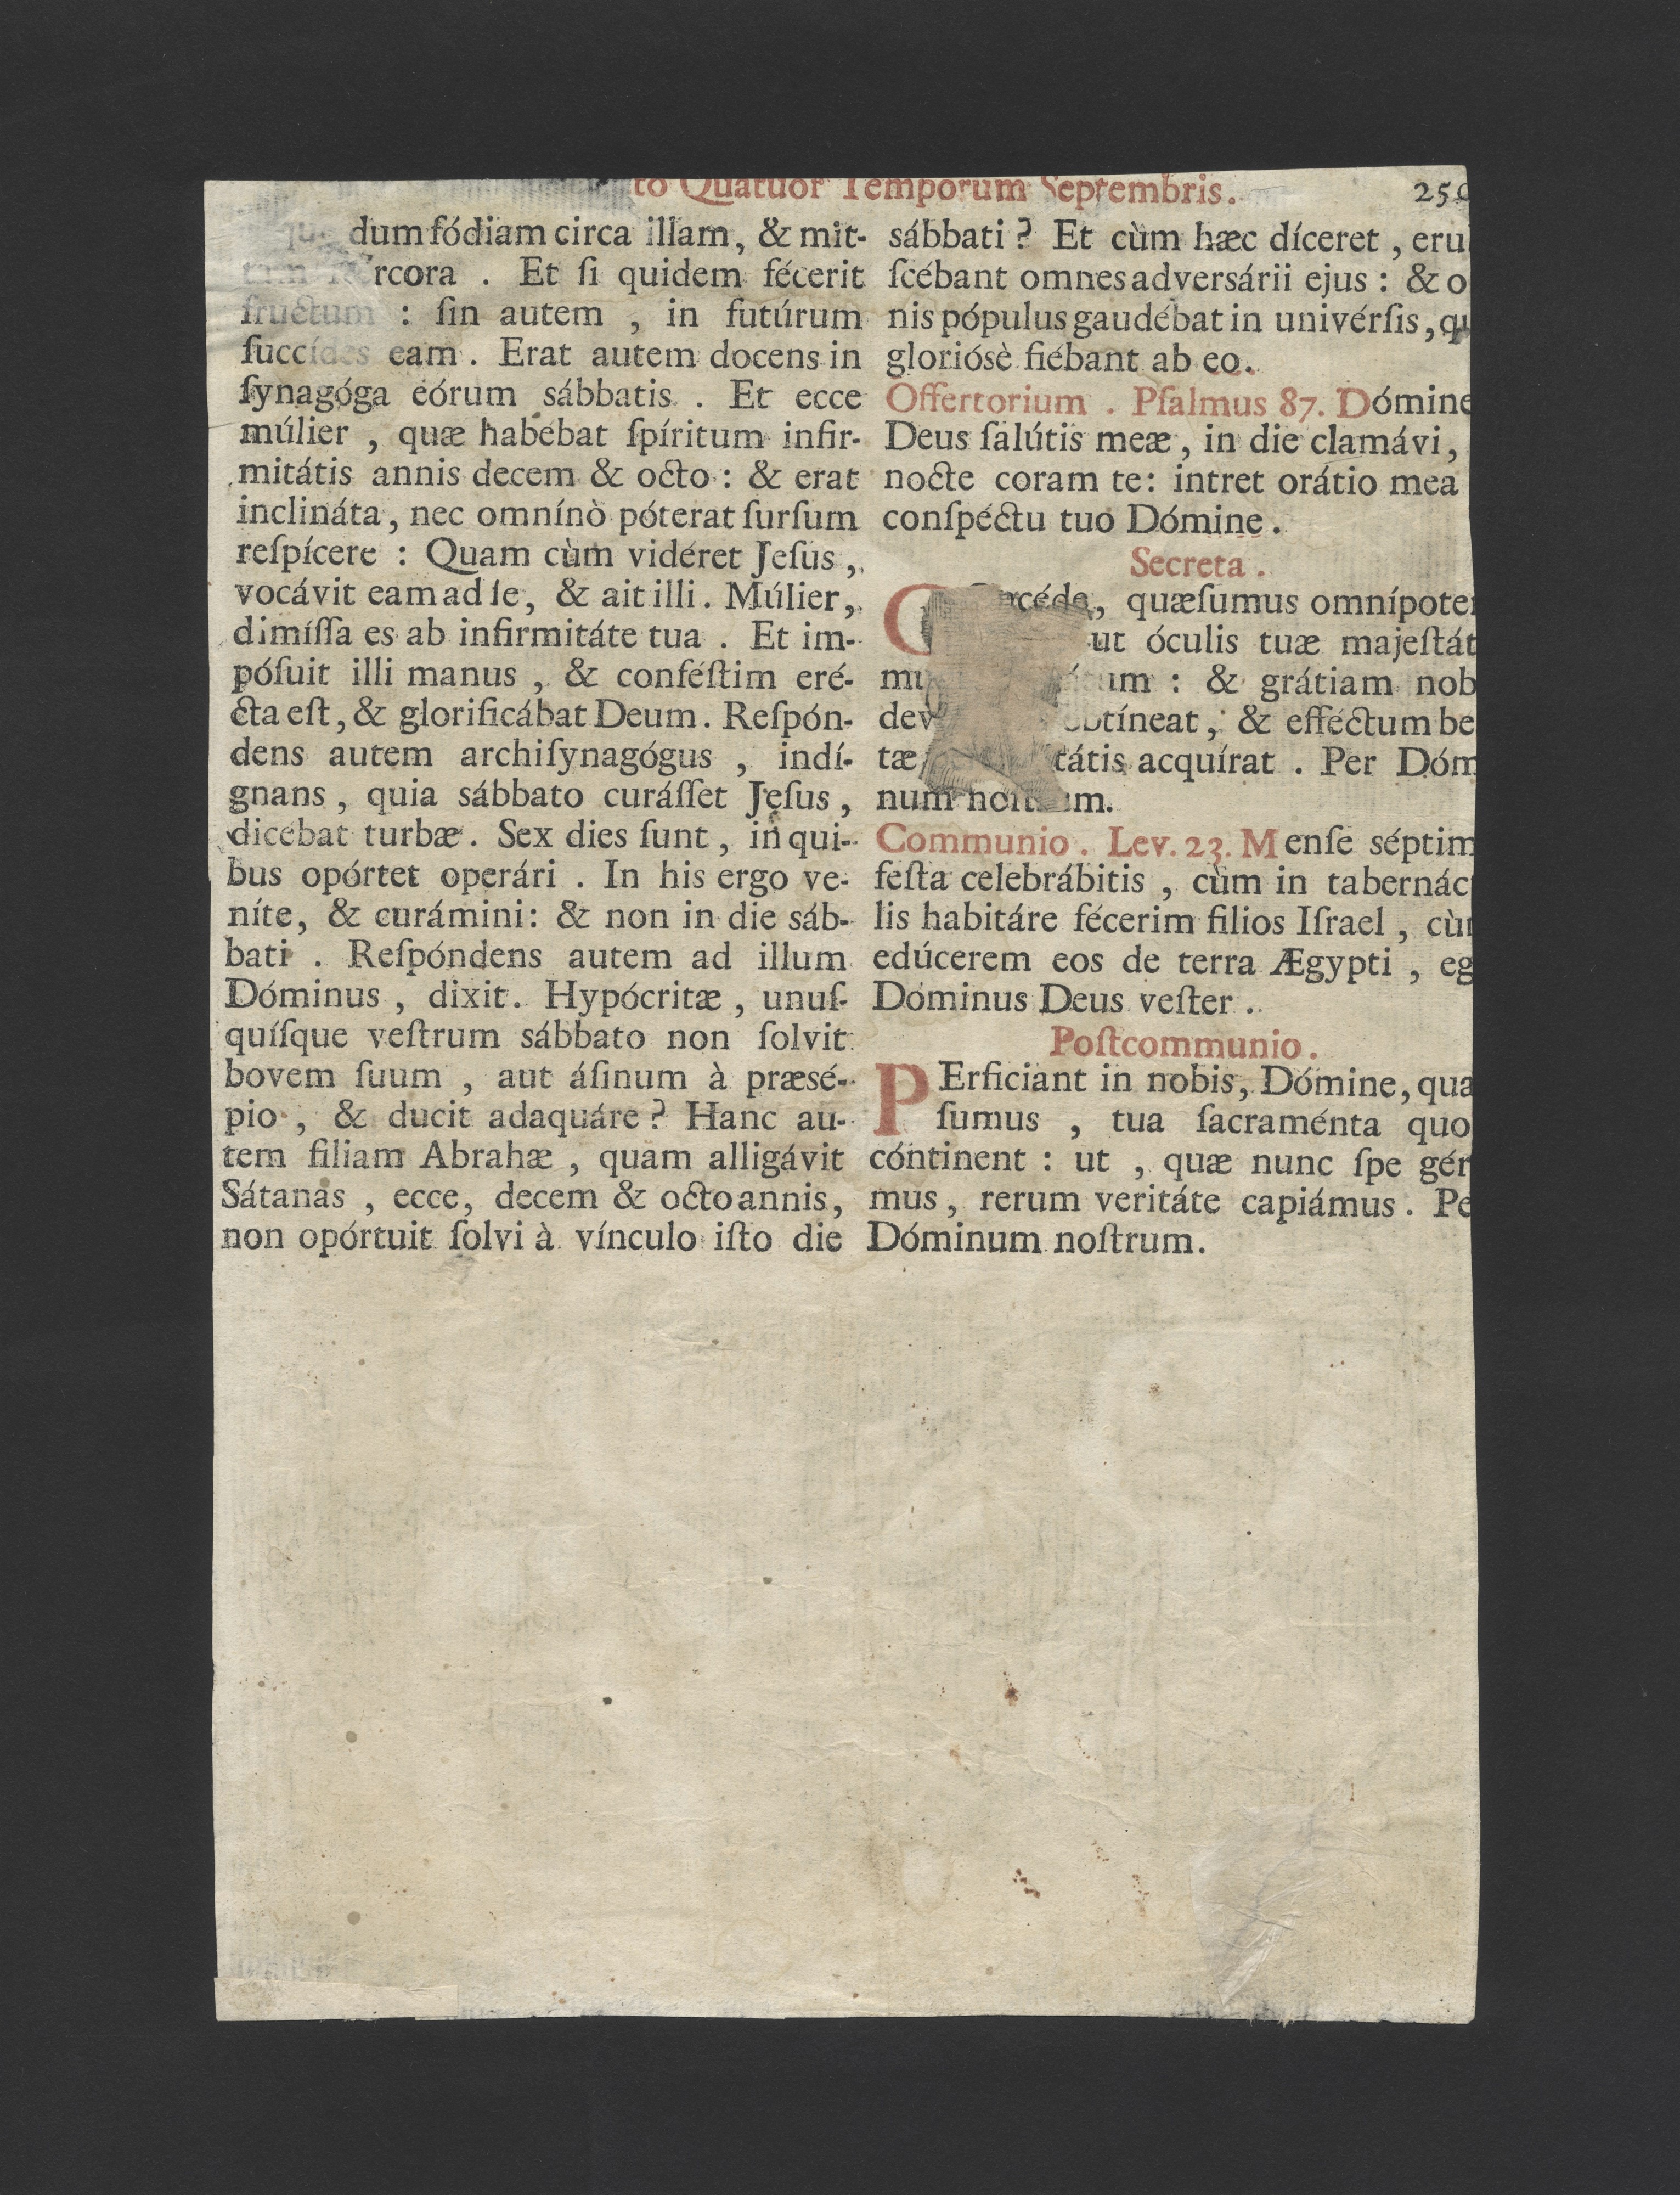 to Quatuor Temporum Septembris.
25
dum fódiam circa illam, & mit-
rcora . Et ſi quidem fécerit
fructum : ſin autem , in futúrum
ſuccídes eam . Erat autem docens in
ſynagóga eórum sábbatis . Et ecce
múlier , quæ habébat ſpíritum infir-
mitátis annis decem & octo : & erat
inclináta , nec omnínò póterat ſurſum
reſpícere : Quam cùm vidéret Jeſus ,
vocávit eam ad ſe , & ait illi . Múlier ,
dimíſſa es ab infirmitáte tua . Et im-
póſuit illi manus , & conféſtim eré-
cta eſt , & glorificábat Deum . Reſpón-
dens autem archiſynagógus , indí-
gnans , quia sábbato curáſſet Jeſus ,
dicébat turbæ . Sex dies ſunt , in qui-
bus opórtet operári . In his ergo ve-
níte , & curámini : & non in die sáb-
bati . Reſpóndens autem ad illum
Dóminus , dixit . Hypócritæ , unuſ-
quíſque veſtrum sábbato non ſolvit
bovem ſuum , aut áſinum à præsé-
pio , & ducit adaquáre ? Hanc au-
tem filiam Abrahæ , quam alligávit
Sátanas , ecce , decem & octo annis ,
non opórtuit ſolvi à vínculo iſto die
sábbati ? Et cùm hæc díceret , eru
ſcébant omnes adversárii ejus : & o
nis pópulus gaudébat in univérſis , qu
glorióſè fiébant ab eo .
Offertorium . Pſalmus 87. Dómine
Deus ſalútis meæ , in die clamávi ,
nocte coram te : intret orátio mea
conſpéctu tuo Dómine .
Secreta .
céde , quæſumus omnípote
ut óculis tuæ majeſtát
mu um : & grátiam nob
dev obtíneat , & efféctum be
tæ tátis acquírat . Per Dóm
num m .
Communio . Lev. 23. Menſe séptim
feſta celebrábitis , cùm in tabernác
lis habitáre fécerim filios Iſrael , cù
edúcerem eos de terra Ægypti , eg
Dóminus Deus veſter .
Poſtcommunio .
PErficiant in nobis , Dómine , quæ
ſumus , tua ſacraménta quo
cóntinent : ut , quæ nunc ſpe gér
mus , rerum veritáte capiámus . Pe
Dóminum noſtrum .